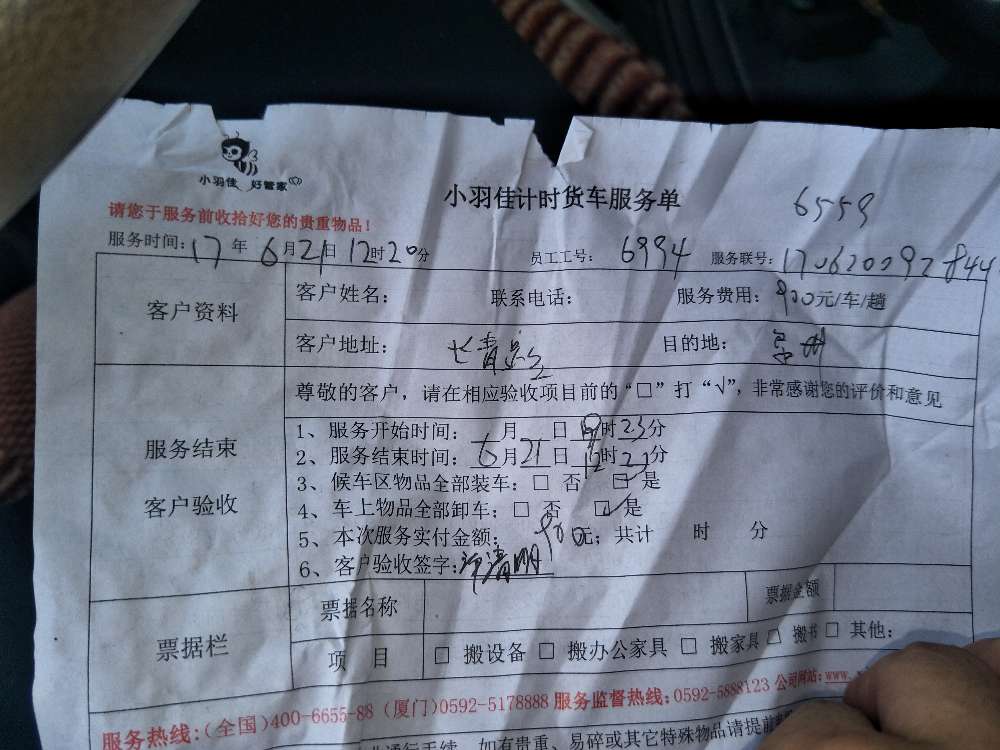 小羽佳 好管家
小羽佳计时货车服务单
6559
请您于服务前收拾好您的贵重物品!
服务时间: 17 年 6 月 21 日 12 时 20 分 员工工号: 6994 服务联号:
客户资料
客户姓名: 联系电话: 服务费用: 900 元/车/趟
客户地址: 长青 目的地:
尊敬的客户，请在相应验收项目前的“□”打“√”, 非常感谢您的评价和意见
服务结束
客户验收
1、服务开始时间: 月 日 时 23 分
2、服务结束时间: 6 月 21 日 12 时 分
3、候车区物品全部装车: □ 否 □ 是
4、车上物品全部卸车: □ 否 ☑ 是
5、本次服务实付金额: 900 元; 共计 时 分
6、客户验收签字: 清明
票据栏
票据名称 票据金额
项 目 □ 搬设备 □ 搬办公家具 □ 搬家具 □ 搬 □ 其他:
服务热线:(全国)400-6655-88 (厦门)0592-5178888 服务监督热线: 0592-5888123 公司网站: www.
通行手续 如有贵重、易碎或其它特殊物品请提前